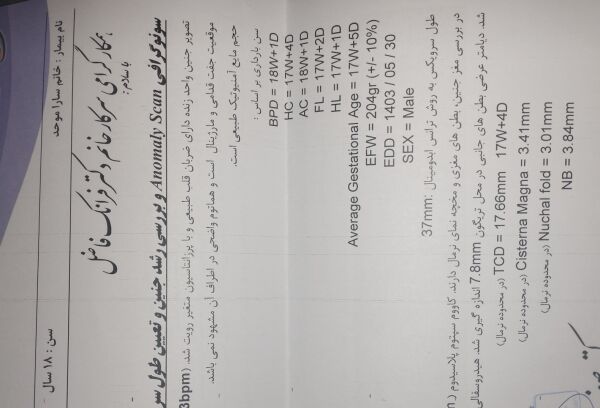 نام بیمار : خانم سارا موحد
سن : ۱۸ سال
همکار گرامی سرکار خانم دکتر فرانک فاضل
با سلام :
سونوگرافی Anomaly Scan و بررسی رشد جنین و تعیین طول سر
تصویر جنین واحد زنده دارای ضربان قلب طبیعی و با پرزانتاسیون متغیر رویت شد. (3bpm
موقعیت جفت قدامی و مارژینال است و هماتوم واضحی در اطراف آن مشهود نمی باشد.
حجم مایع آمنیوتیک طبیعی است.
سن بارداری بر اساس :
BPD = 18W+1D
HC = 17W+4D
AC = 18W+1D
FL = 17W+2D
HL = 17W+1D
Average Gestational Age = 17W+5D
EFW = 204gr (+/- 10%)
EDD = 1403 / 05 / 30
SEX = Male
طول سرویکس به روش ترانس ابدومینال: 37mm
در بررسی مغز جنین، بطن های مغزی و مخچه نمای نرمال دارند. کاووم سپتوم پلاسیدوم
شد. دیامتر عرضی بطن های جانبی در محل تریگون 7.8mm اندازه گیری شد. هیدروسفالی
TCD = 17.66mm 17W+4D (در محدوده نرمال)
Cisterna Magna = 3.41mm (در محدوده نرمال)
Nuchal fold = 3.01mm (در محدوده نرمال)
NB = 3.84mm